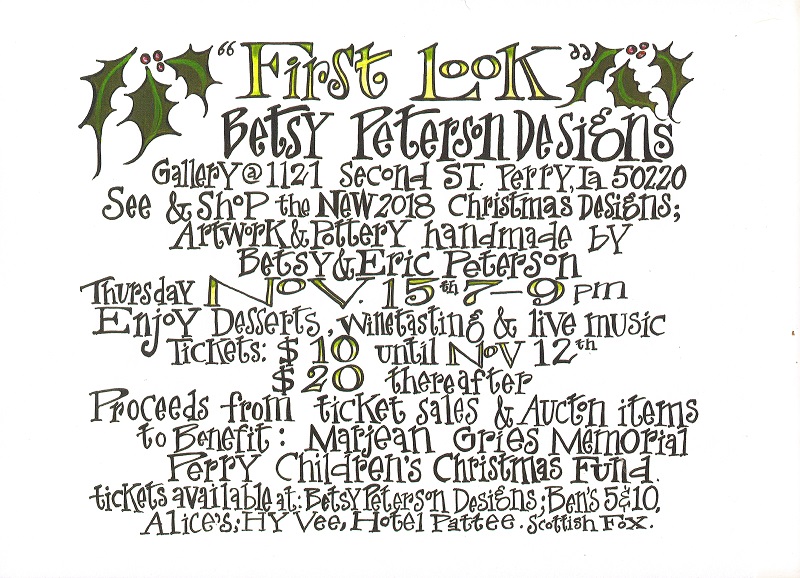 "First Look"
Betsy Peterson Designs
Gallery @ 1121 Second St. Perry, Ia 50220
See & Shop the New 2018 Christmas Designs;
Artwork & Pottery handmade by
Betsy & Eric Peterson
Thursday Nov. 15th 7-9 pm
Enjoy Desserts, winetasting & live music
Tickets: $10 until Nov 12th
$20 thereafter
Proceeds from ticket sales & Aucton items
to Benefit: Marjean Gries Memorial
Perry Children's Christmas Fund.
tickets available at: Betsy Peterson Designs; Ben's 5&10,
Alice's; Hy Vee, Hotel Pattee. Scottish Fox.